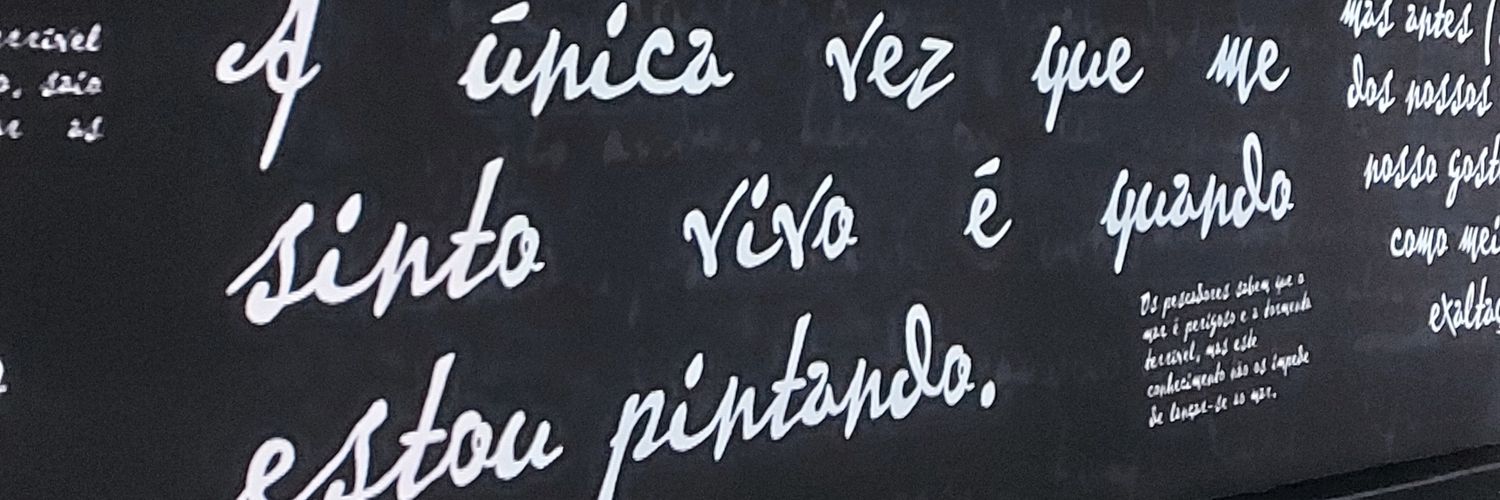 saio
as
A única vez que me
sinto vivo é quando
estou pintando.
Os pescadores sabem que o
mar é perigoso e a tormenta
terrível, mas este
conhecimento não os impede
de lançar-se ao mar.
mas antes (
dos nossos
nosso gost
como mei
exaltaç